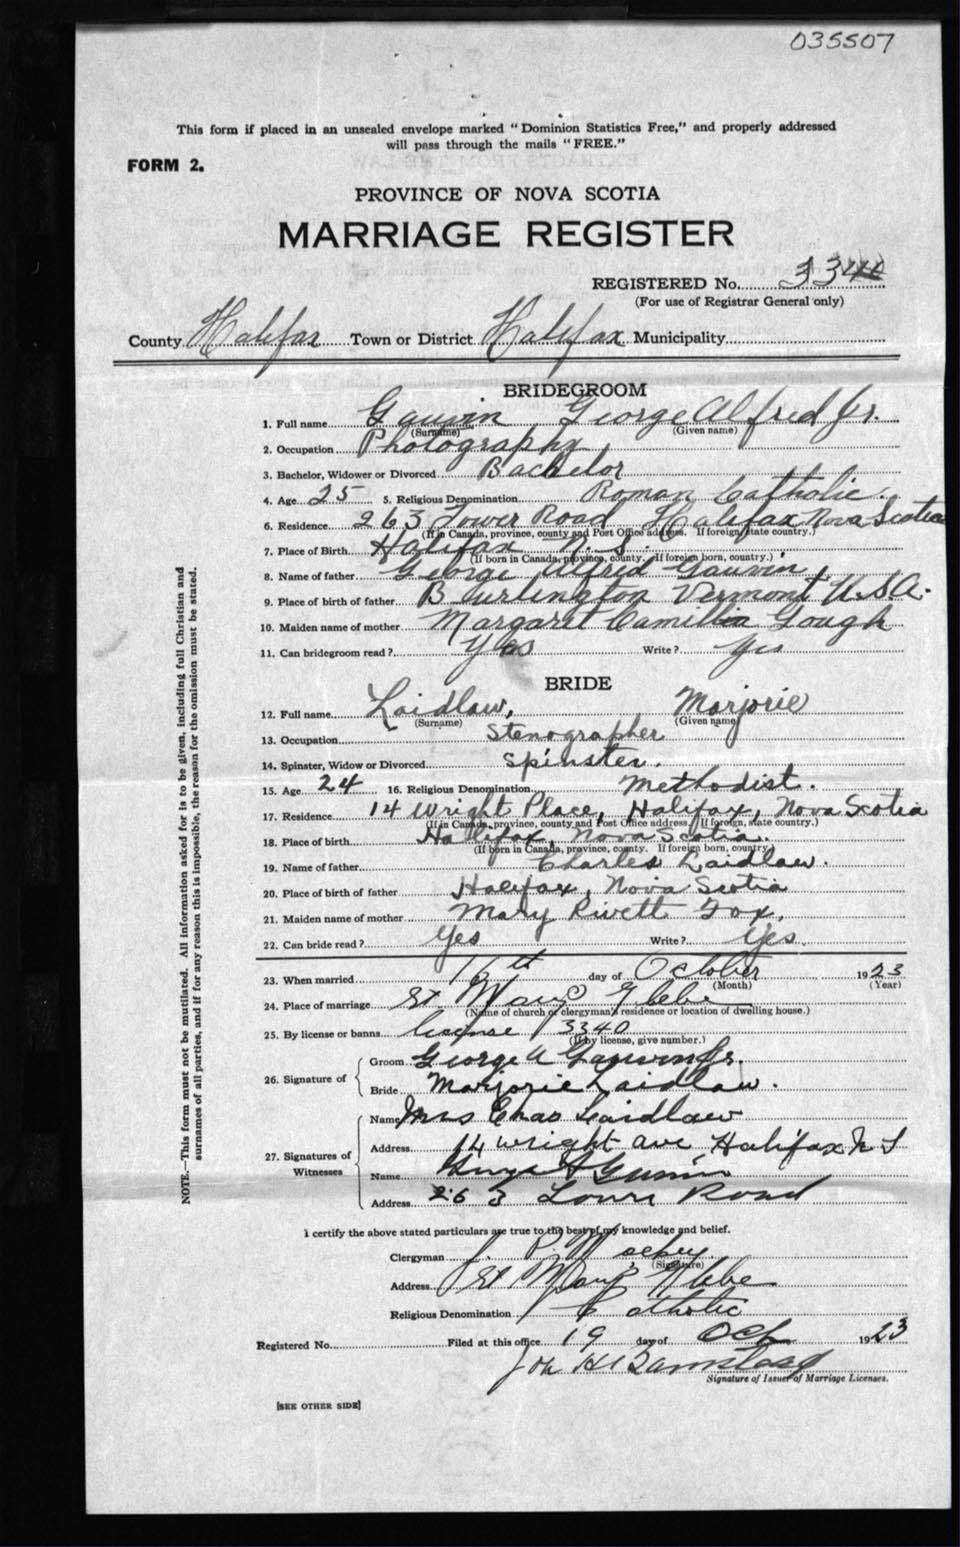 035507
This form if placed in an unsealed envelope marked "Dominion Statistics Free," and properly addressed
will pass through the mails "FREE."
FORM 2.
PROVINCE OF NOVA SCOTIA
MARRIAGE REGISTER
REGISTERED No. 3340
(For use of Registrar General only)
County Halifax Town or District Halifax Municipality
BRIDEGROOM
1. Full name Gauvin George Alfred Jr.
(Surname) (Given name)
2. Occupation Photography
3. Bachelor, Widower or Divorced Bachelor
4. Age 25 5. Religious Denomination Roman Catholic.
6. Residence 263 Tower Road Halifax Nova Scotia
(If in Canada, province, county and Post Office address. If foreign, state country.)
7. Place of Birth Halifax N.S
(If born in Canada, province, county. If foreign born, country.)
8. Name of father George Alfred Gauvin
9. Place of birth of father Burlington Vermont U.S.A.
10. Maiden name of mother Margaret Camillia Gough
11. Can bridegroom read? Yes Write? Yes
BRIDE
12. Full name Laidlaw, Marjorie
(Surname) (Given name)
13. Occupation Stenographer
14. Spinster, Widow or Divorced Spinster.
15. Age 24 16. Religious Denomination Methodist.
17. Residence 14 Wright Place, Halifax, Nova Scotia
(If in Canada, province, county and Post Office address. If foreign, state country.)
18. Place of birth Halifax, Nova Scotia.
(If born in Canada, province, county. If foreign born, country.)
19. Name of father Charles Laidlaw.
20. Place of birth of father Halifax, Nova Scotia
21. Maiden name of mother Mary Rivett Fox,
22. Can bride read? Yes Write? Yes.
23. When married 16th day of October 1923
(Month) (Year)
24. Place of marriage St Mary's Glebe
(Name of church or clergyman's residence or location of dwelling house.)
25. By license or banns license 3340
(If by license, give number.)
26. Signature of
Groom George A Gauvin Jr.
Bride Marjorie Laidlaw.
27. Signatures of Witnesses
Name Mrs Chas Laidlaw
Address 14 Wright Ave Halifax N S
Name Gauvin
Address 263 Tower Road
I certify the above stated particulars are true to the best of my knowledge and belief.
Clergyman J. P.
(Signature)
Address St Mary's Glebe
Religious Denomination Catholic
Registered No. Filed at this office 19 day of Oct 1923
Signature of Issuer of Marriage Licenses.
[SEE OTHER SIDE]
NOTE.—This form must not be mutilated. All information asked for is to be given, including full Christian and
surnames of all parties, and if for any reason this is impossible, the reason for the omission must be stated.